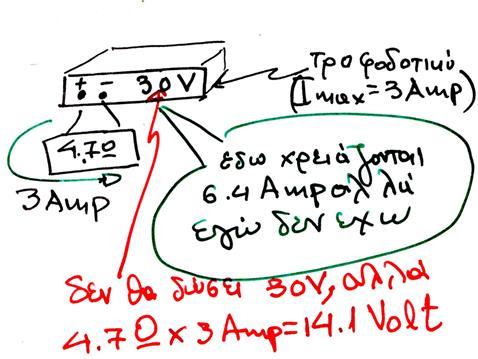 + - 30V
τροφοδοτικό
(Imax=3Amp)
4.7Ω
3 Amp
εδω χρειάζονται
6.4 Amp αλλά
εγώ δεν εχω
δεν θα δώσει 30V, αλλα
4.7Ω x 3 Amp=14.1 Volt